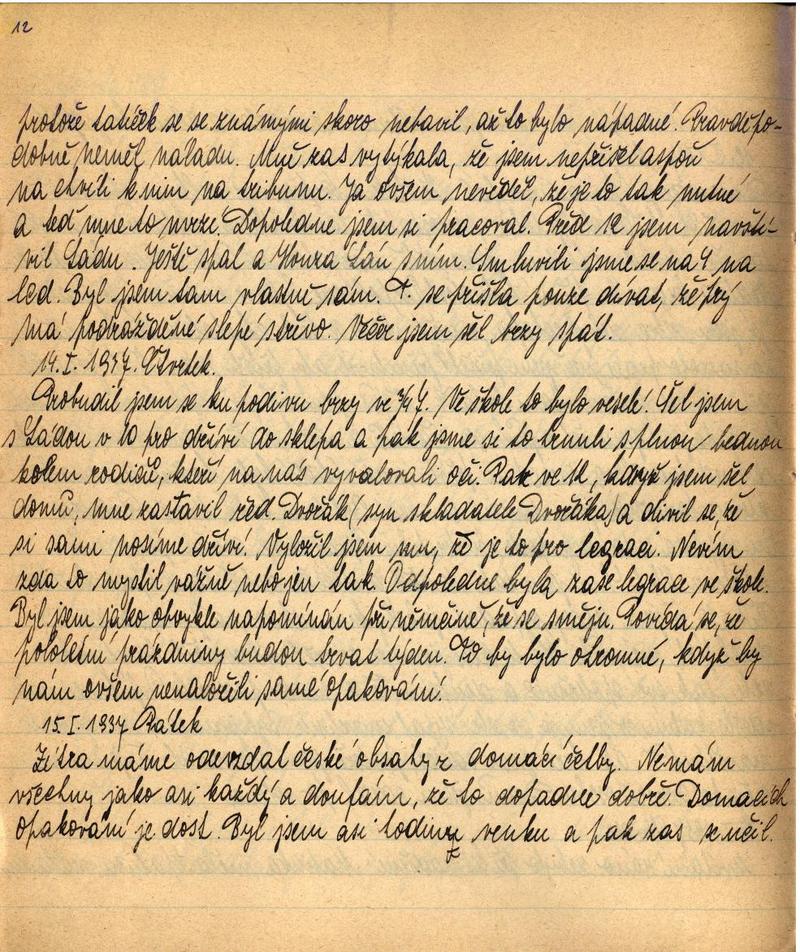 12
protože tatíček se se známými skoro nebavil, až to bylo nápadné. Pravděpo-
dobně neměl náladu. Mně zas vytýkala, že jsem nepřišel aspoň
na chvíli k nim na tribunu. Já ovšem nevěděl, že je to tak nutné
a teď mne to mrzí. Dopoledne jsem si pracoval. Před 12 jsem navští-
vil Láďu. Ještě spal a Honza Lán s ním. Smluvili jsme se na 4 na
led. Byl jsem tam vlastně sám. T. se přišla pouze dívat, že prý
má podrážděné slepé střevo. Večer jsem šel brzy spát.
14. I. 1937. Čtvrtek.
Probudil jsem se ku podivu brzy ve 3/4 7. Ve škole to bylo veselé. Šel jsem
s Láďou v 10 pro dříví do sklepa a pak jsme si to hnuli s plnou bednou
kolem rodičů, kteří na nás vyvalovali oči. Pak ve 12, když jsem šel
domů, mne zastavil řed. Dvořák (syn skladatele Dvořáka) a divil se, že
si sami nosíme dříví. Vyložil jsem mu, že je to pro legraci. Nevím
zda to myslil vážně nebo jen tak. Odpoledne byla zase legrace ve škole.
Byl jsem jako obvykle napomínán při němčině, že se směju. Povídá se, že
pololetní prázdniny budou trvat týden. To by bylo ohromné, když by
nám ovšem nenaložili samé opakování.
15. I. 1937 Pátek
Zítra máme odevzdat české obsahy z domácí četby. Nemám
všechny jako asi každý a doufám, že to dopadne dobře. Domácích
opakování je dost. Byl jsem asi hodinu venku a pak zas se učil.